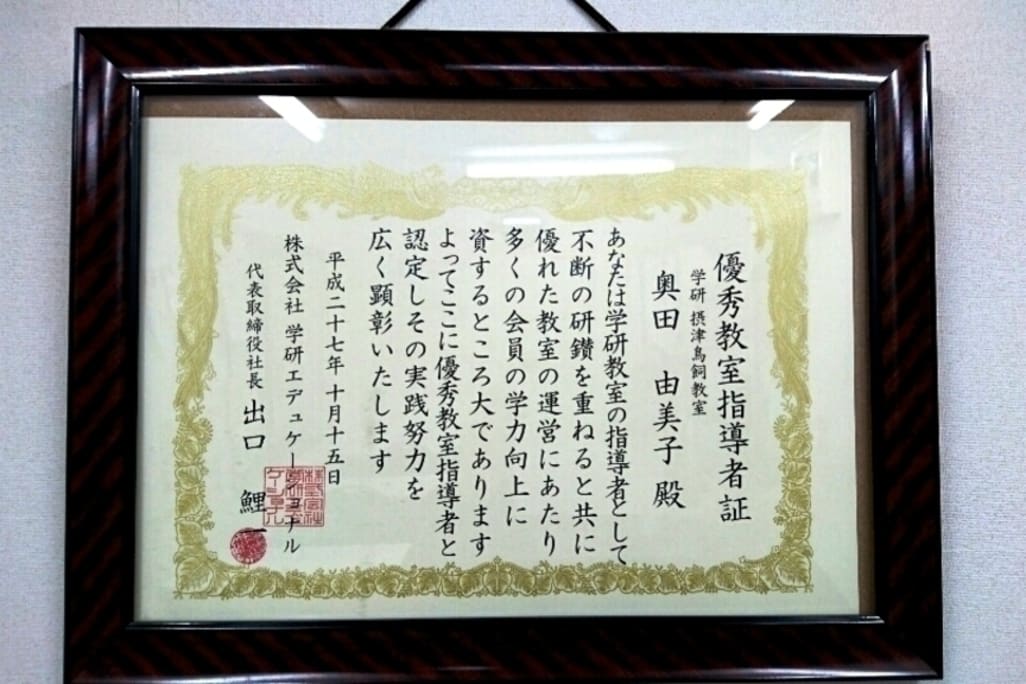 優秀教室指導者証
学研 摂津鳥飼教室
奥田 由美子 殿
あなたは学研教室の指導者として
不断の研鑽を重ねると共に
優れた教室の運営にあたり
多くの会員の学力向上に
資するところ大であります
よってここに優秀教室指導者と
認定しその実践努力を
広く顕彰いたします
平成二十七年 十月十五日
株式会社 学研エデュケーショナル
代表取締役社長 出口 鯉一